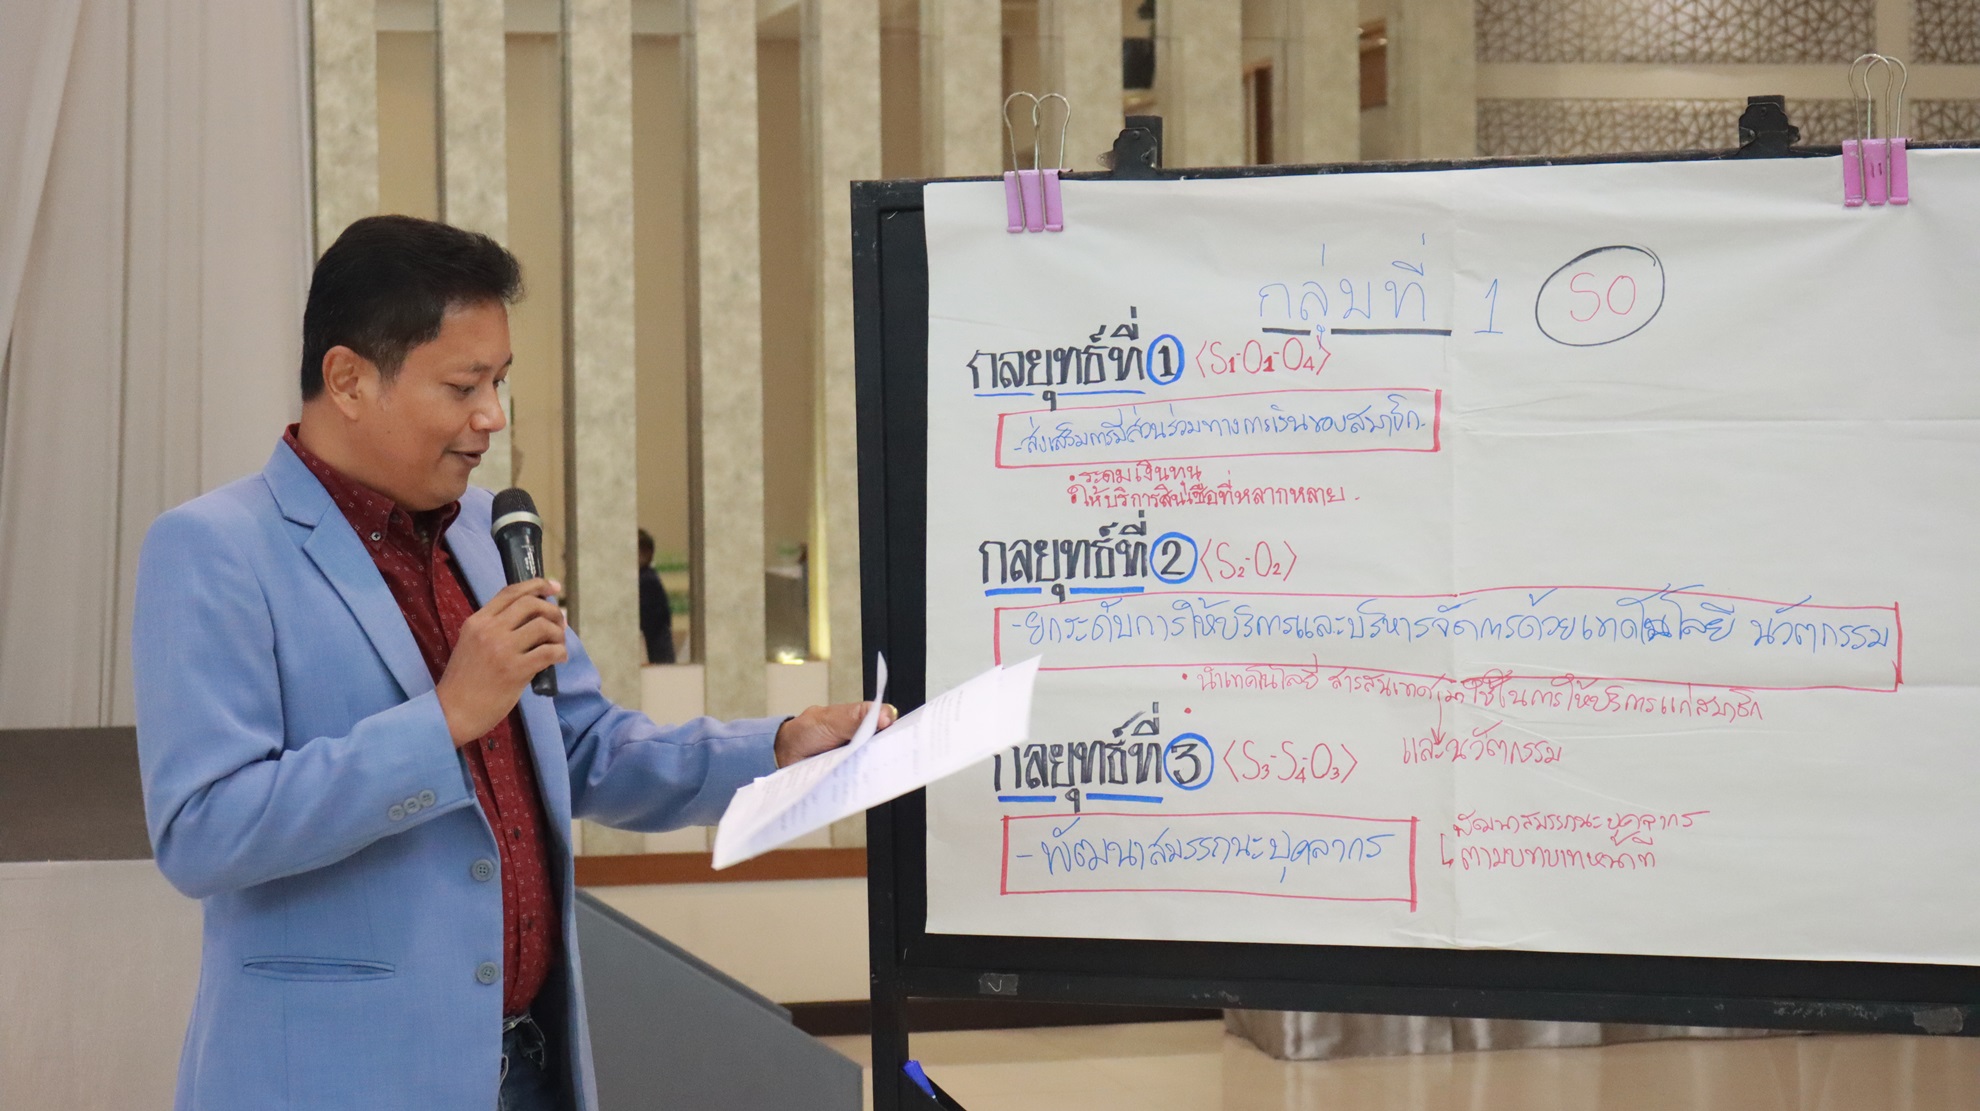 กลุ่มที่ 1 SO
กลยุทธ์ที่ 1 <S1-O1-O4>
- ส่งเสริมการมีส่วนร่วมทางการเงินของสมาชิก
• ระดมเงินทุน
• ให้บริการสินเชื่อที่หลากหลาย.
กลยุทธ์ที่ 2 <S2-O2>
- ยกระดับการให้บริการและบริหารจัดการด้วยเทคโนโลยี นวัตกรรม
• นำเทคโนโลยี สารสนเทศมาใช้ในการให้บริการแก่สมาชิก
และนวัตกรรม
กลยุทธ์ที่ 3 <S3-S4-O3>
- พัฒนาสมรรถนะบุคลากร
พัฒนาสมรรถนะบุคลากร
ตามบทบาทหน้าที่